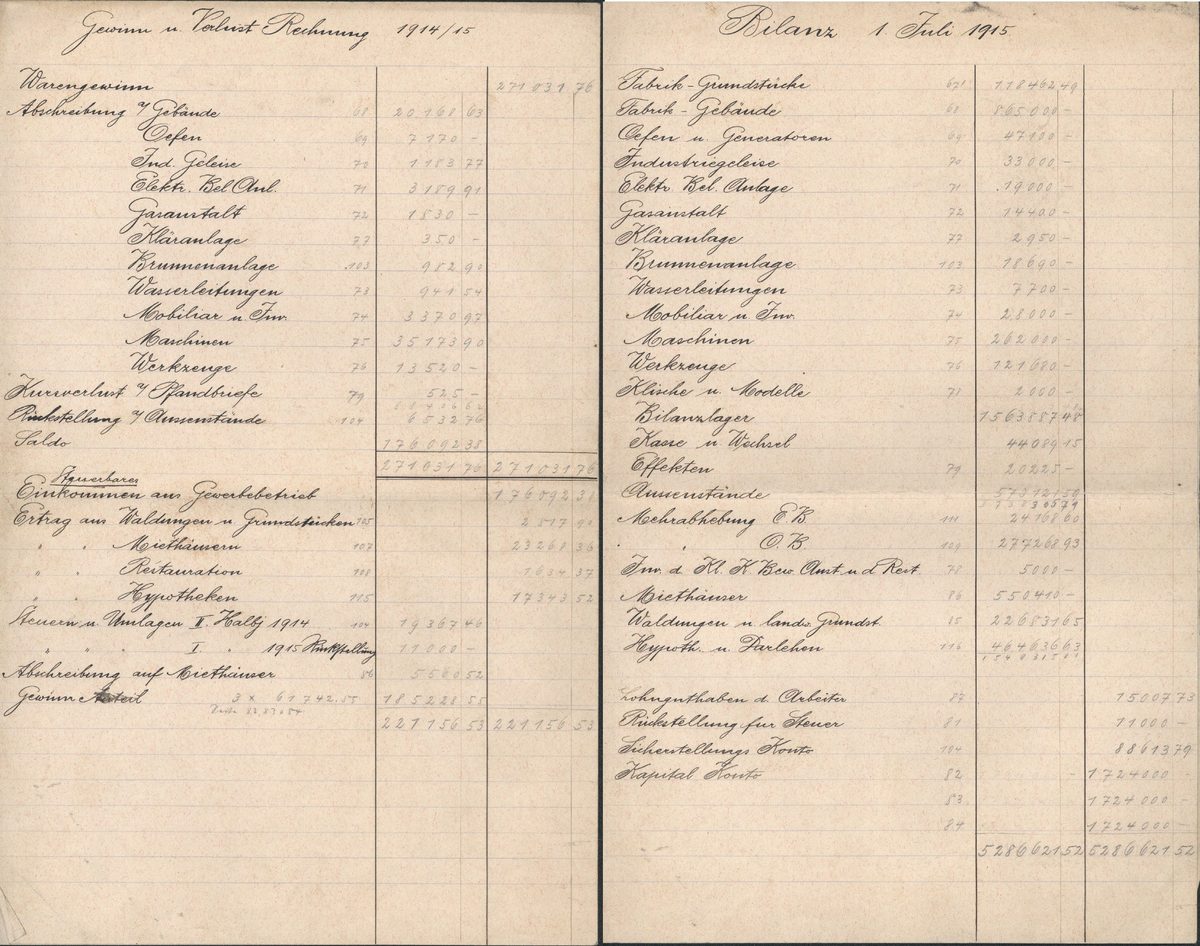 Gewinn u. Verlust Rechnung 1914/15
Warengewinn 271031 76
Abschreibung a/ Gebäude 68 20168 63
Oefen 69 7170 -
Ind. Geleise 70 1183 77
Elektr. Bel. Anl. 71 3189 91
Gasanstalt 72 1530 -
Kläranlage 77 350 -
Brunnenanlage 103 982 90
Wasserleitungen 73 941 54
Mobiliar u Inv. 74 3370 97
Maschinen 75 35173 90
Werkzeuge 76 13520 -
Kursverlust a/ Pfandbriefe 79 525 -
Rückstellung a/ Aussenstände 104 6532 76
Saldo 176092 38
271031 76 271031 76
Steuerbares
Einkommen aus Gewerbebetrieb 176092 38
Ertrag aus Waldungen u. Grundstücken 105 2817 90
" " Miethäusern 107 23268 36
" " Restauration 108 1634 37
" " Hypotheken 115 17343 52
Steuern u. Umlagen II. Halbj 1914 104 19367 46
" " " I. " 1915 Rückstellung 11000 -
Abschreibung auf Miethäuser 86 5560 52
Gewinn Anteil 3 x 61742.85 185228 55
221156 53 221156 53
Bilanz 1. Juli 1915.
Fabrik-Grundstücke 67 118462 49
Fabrik-Gebäude 68 865000 -
Oefen u. Generatoren 69 47100 -
Industriegeleise 70 33000 -
Elektr. Bel. Anlage 71 19000 -
Gasanstalt 72 14400 -
Kläranlage 77 2950 -
Brunnenanlage 103 18690 -
Wasserleitungen 73 7700 -
Mobiliar u Inv. 74 28000 -
Maschinen 75 262000 -
Werkzeuge 76 121680 -
Klische u. Modelle 71 2000 -
Bilanzlager 1563887 48
Kasse u Wechsel 44089 15
Effekten 79 20225 -
Aussenstände
Mehrabhebung E.B. 111 24168 60
" O.B. 109 27726 93
Inv. d. Kl. K. Bew. Anst. u. d. Rest. 78 5000 -
Miethäuser 86 550410 -
Waldungen u. landw. Grundst. 85 226831 65
Hypoth. u. Darlehen 116 464636 63
Lohnguthaben d. Arbeiter 87 15007 73
Rückstellung für Steuer 81 11000 -
Sicherstellungs Konto 104 88613 79
Kapital Konto 82 - 1724000 -
83 1724000 -
84 1724000 -
5286621 52 5286621 52